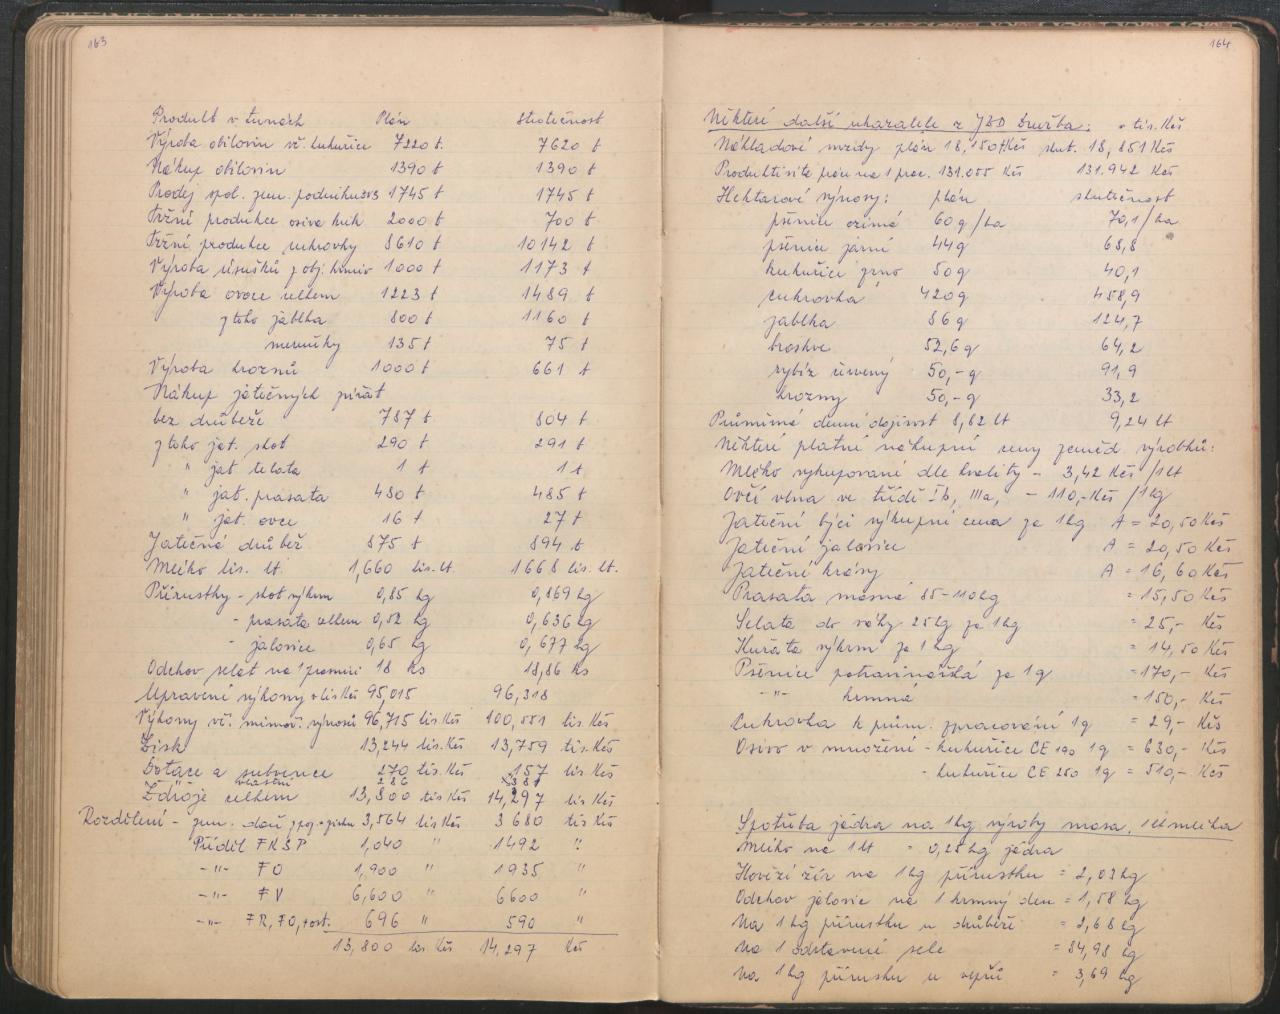 163
Produkt v tunách Plán Skutečnost
Výroba obilovin vč. kukuřice 7220 t. 7620 t
Nákup obilovin 1390 t 1390 t
Prodej spol. zem. podnikům 1745 t 1745 t
Tržní produkce osiva kuk 2000 t 700 t
Tržní produkce cukrovky 8610 t 10142 t
Výroba úsušků z obj. krmiv 1000 t 1173 t
Výroba ovoce celkem 1223 t 1489 t
z toho jablka 800 t 1160 t
meruňky 135 t 75 t
Výroba hroznů 1000 t 661 t
Nákup jatečných zvířat
bez drůbeže 787 t 804 t
z toho jat. skot 290 t 291 t
" jat telata 1 t 1 t
" jat. prasata 480 t 485 t
" jat. ovce 16 t 27 t
Jatečná drůbež 875 t 894 t
Mléko tis. lt. 1,660 tis. lt. 1668 tis. lt.
Přírustky - skot výkrm 0,85 kg 0,869 kg
- prasata celkem 0,52 kg 0,636 kg
- jalovice 0,65 kg 0,677 kg
Odchov selat na 1 prasnici 18 ks 18,86 ks
Upravené výkony v tis Kčs 95,015 96,318
Výkony vč. mimoř. výnosů 96,715 tis Kčs 100,551 tis. Kčs
Zisk 13,244 tis. Kčs 13,759 tis. Kčs
Dotace a subvence 270 tis. Kčs 157 tis Kčs
vlastní 286 381
Zdroje celkem 13,800 tis Kčs 14,297 tis Kčs
Rozdělení - zem. daň z poz + zisku 3,564 tis Kčs 3 680 tis Kčs
Příděl FKSP 1,040 " 1492 "
-"- FO 1,900 " 1935 "
-"- FV 6,600 " 6600 "
-"- FR, FO, rost. 696 " 590 "
13,800 tis Kčs 14,297 Kčs
164
Některé další ukazatele z JZD Družba: v tis. Kčs
Nákladové mzdy plán 18,150 Kčs skut. 18,851 Kčs
Produktivita práce na 1 prac. 131.055 Kčs 131.942 Kčs
Hektarové výnosy: plán skutečnost
pšenice ozimá 60 q/ha 70,1/ha
pšenice jarní 44 q 68,8
kukuřice zrno 50 q 40,1
cukrovka 420 q 458,9
jablka 86 q 124,7
broskve 52,6 q 64,2
rybíz červený 50,- q 91,9
hrozny 50,- q 33,2
Průměrná denní dojivost 8,82 lt 9,24 lt
Některé platné nákupní ceny zeměd. výrobků:
Mléko vykupované dle kvality - 3,42 Kčs/1 lt
Ovčí vlna ve třídě Ib, IIIa, - 110,- Kčs/1 kg
Jateční býci výkupní cena za 1 kg A = 20,50 Kčs
Jateční jalovice A = 20,50 Kčs
Jateční krávy A = 16,60 Kčs
Prasata masná 85-110 kg = 15,50 Kčs
Selata do váhy 25 kg za 1 kg = 25,- Kčs
Kuřata výkrm za 1 kg = 14,50 Kčs
Pšenice potravinářská za 1 q = 170,- Kčs
-"- krmná = 150,- Kčs
Cukrovka k prům. zpracování 1 q = 29,- Kčs
Osivo v množení - kukuřice CE 190 1 q = 630,- Kčs
- kukuřice CE 250 1 q = 510,- Kčs
Spotřeba jádra na 1 kg výroby masa, 1 lt mléka
Mléko na 1 lt = 0,25 kg jádra
Hovězí žír na 1 kg přírustku = 2,03 kg
Odchov jalovic na 1 krmný den = 1,58 kg
Na 1 kg přírustku u drůbeže = 2,68 kg
Na 1 odstavené sele = 84,98 kg
Na 1 kg přírusku u vepřů = 3,69 kg